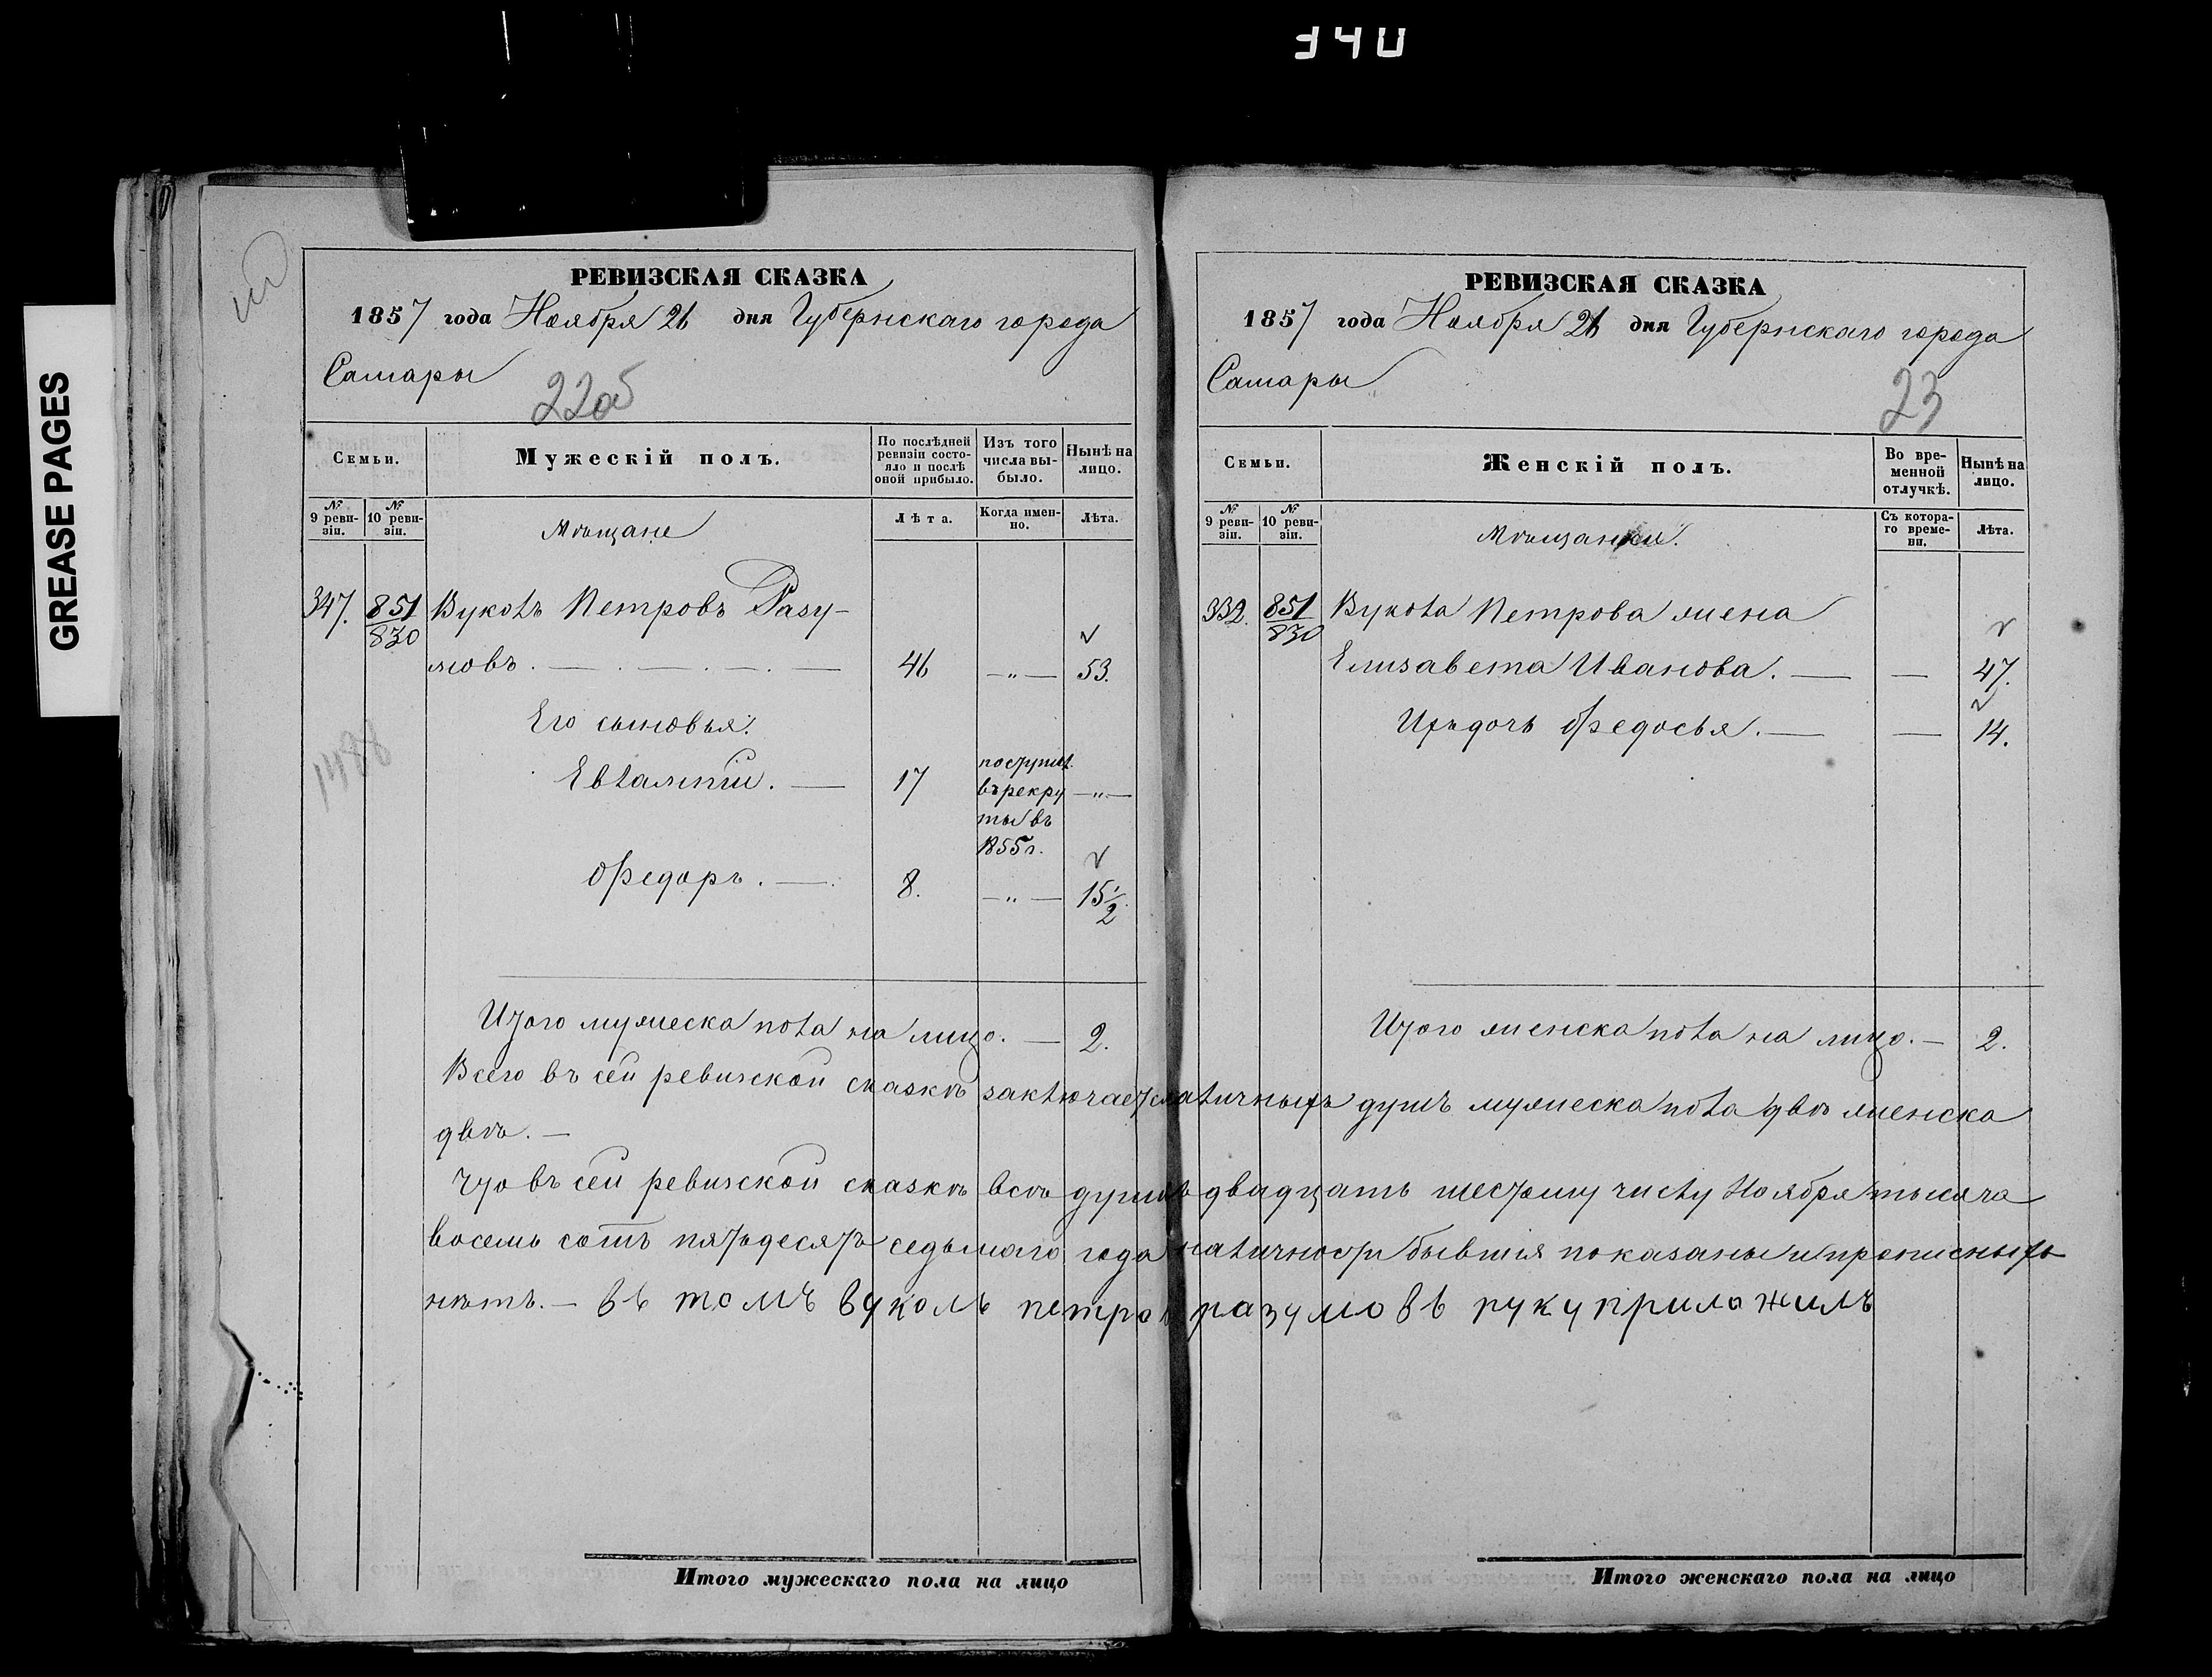 040
GREASE PAGES
РЕВИЗСКАЯ СКАЗКА
1857 года Ноября 26 дня Губернскаго города
Самары
22об
Семьи.
Мужескій полъ.
По послѣдней ревизіи состо-
яло и послѣ
оной прибыло.
Изъ того
числа вы-
было.
Нынѣ на
лицо.
№ 9 реви-
зіи.
№ 10 реви-
зіи.
Мѣщане
Лѣта.
Когда имен-
но.
Лѣта.
347. 851/830 Вуколъ Петровъ Разу-
мовъ. 46 — „ — 53.
Его сыновья.
Евлампій. 17 поступил. въ рекру
ты въ
1855 г. — „ —
Ѳедоръ. 8. — „ — 15 1/2
1488
Итого мужеска пола на лицо. — 2.
РЕВИЗСКАЯ СКАЗКА
1857 года Ноября 26 дня Губернскаго города
Самары
23
Семьи.
Женскій полъ.
Во вре-
менной
отлучкѣ.
Нынѣ на
лицо.
№ 9 реви-
зіи.
№ 10 реви-
зіи.
Мѣщанки.
Съ котора-
го време-
ни.
Лѣта.
332. 851/830 Вукола Петрова жена
Елизавета Иванова. — — 47.
Ихъ дочь Ѳедосья. — — 14.
Итого женска пола на лицо. — 2.
Всего въ сей ревизской сказкѣ заключается наличныхъ душъ мужеска пола двѣ женска
двѣ. —
Что въ сей ревизской сказкѣ всѣ души къ двадцать шестому числу Ноября тысяча
восемь сотъ пятьдесятъ седьмаго года наличности бывшія показаны и прописныхъ
нѣтъ. — вь томъ вуколь петров разумовь руку приложилъ
Итого мужескаго пола на лицо
Итого женскаго пола на лицо